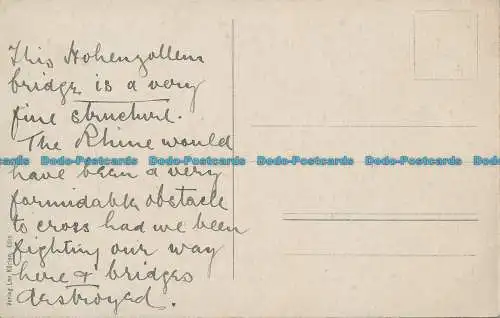 This Hohenzollern
bridge is a very
fine structure.
The Rhine would
Dodo-Postcards Dodo-Postcards Dodo-Postcards Dodo-Postcards Dodo-Postcards
have been a very
formidable obstacle
to cross had we been
fighting our way
here & bridges
destroyed.
Verlag Leo Köln